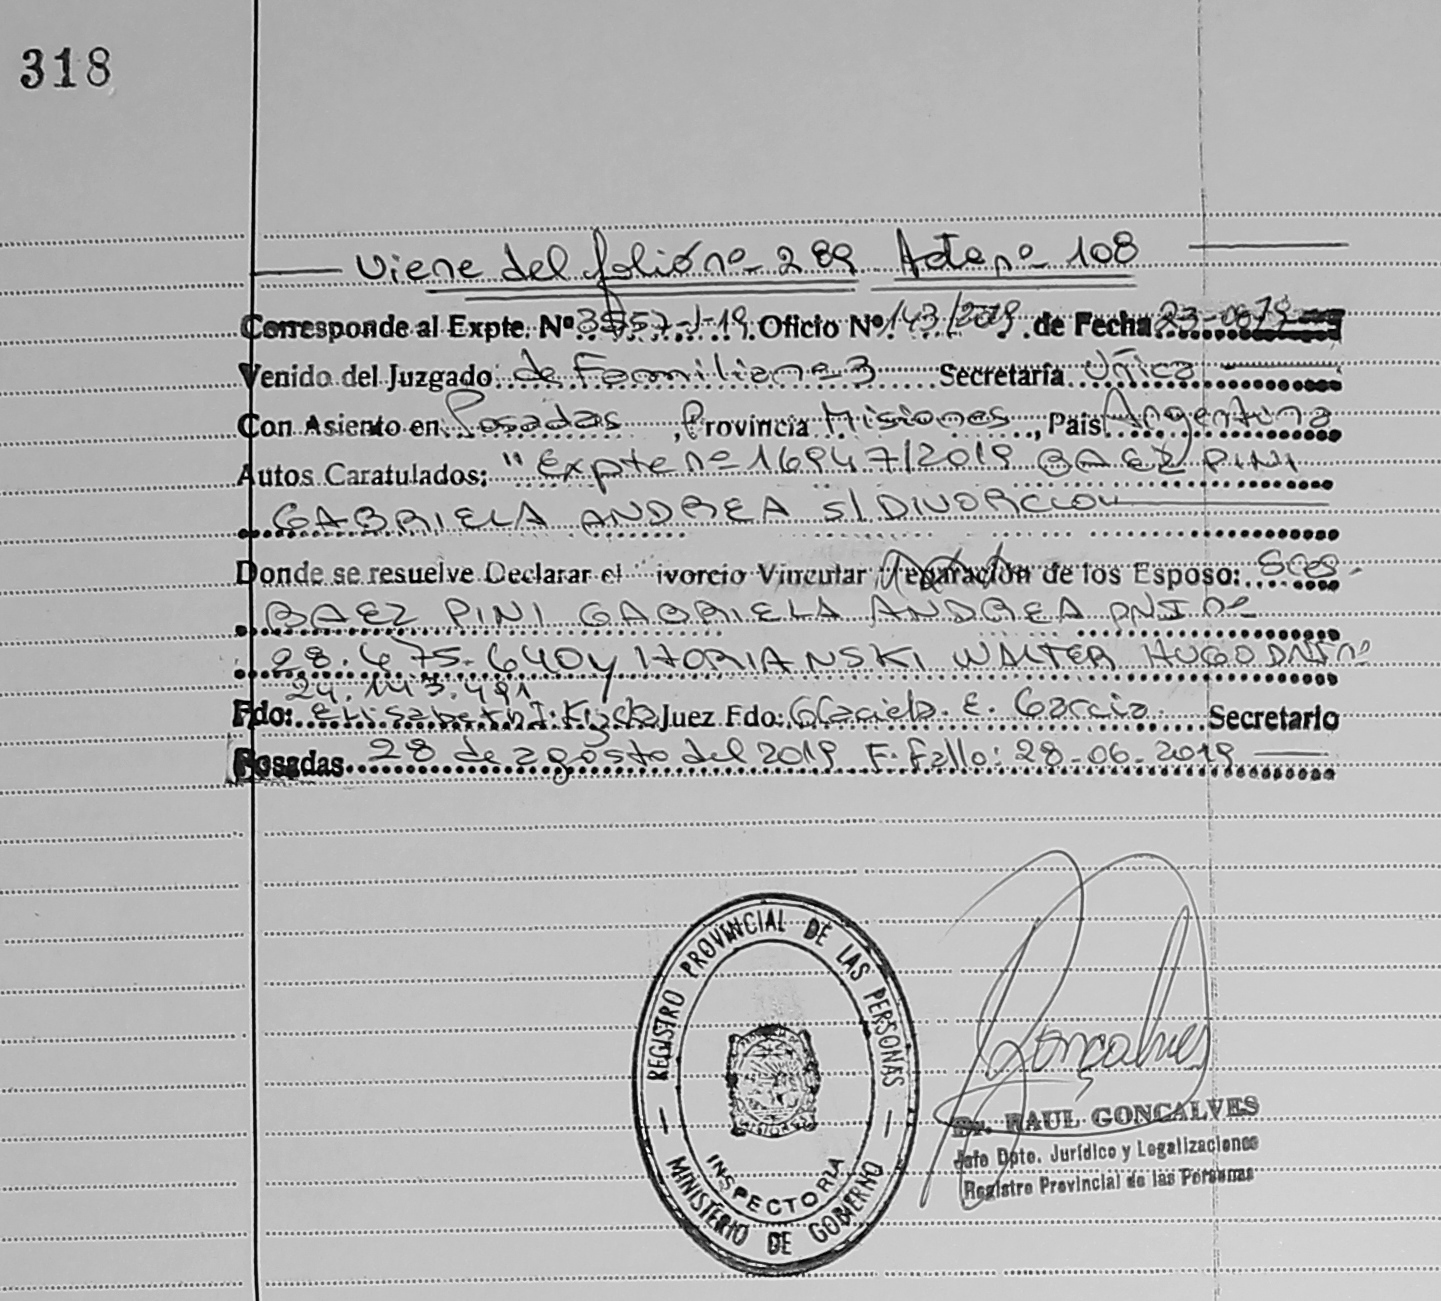 318
Viene del folio nº 289 Acta nº 108
Corresponde al Expte. Nº 3557-J-19. Oficio Nº 143/2019 de Fecha 23-08-19
Venido del Juzgado de Familia nº 3 Secretaría Única
Con Asiento en Posadas, Provincia Misiones, País Argentina
Autos Caratulados: "Expte nº 16947/2019 BAEZ PINI
GABRIELA ANDREA s/ DIVORCIO"
Donde se resuelve Declarar el ivorcio Vincular de los Esposo: Sres.
BAEZ PINI GABRIELA ANDREA DNI nº
28.475.640 y HORIANSKI WALTER HUGO DNI nº
24.143.491
Fdo: Juez Fdo: Graciela E. Garcia Secretario
Posadas 28 de agosto del 2019 F. Fallo: 28-06-2019
REGISTRO PROVINCIAL DE LAS PERSONAS
MISIONES
INSPECTORIA
MINISTERIO DE GOBIERNO
Gonçalves
Dr. RAUL GONCALVES
Jefe Dpto. Jurídico y Legalizaciones
Registro Provincial de las Personas